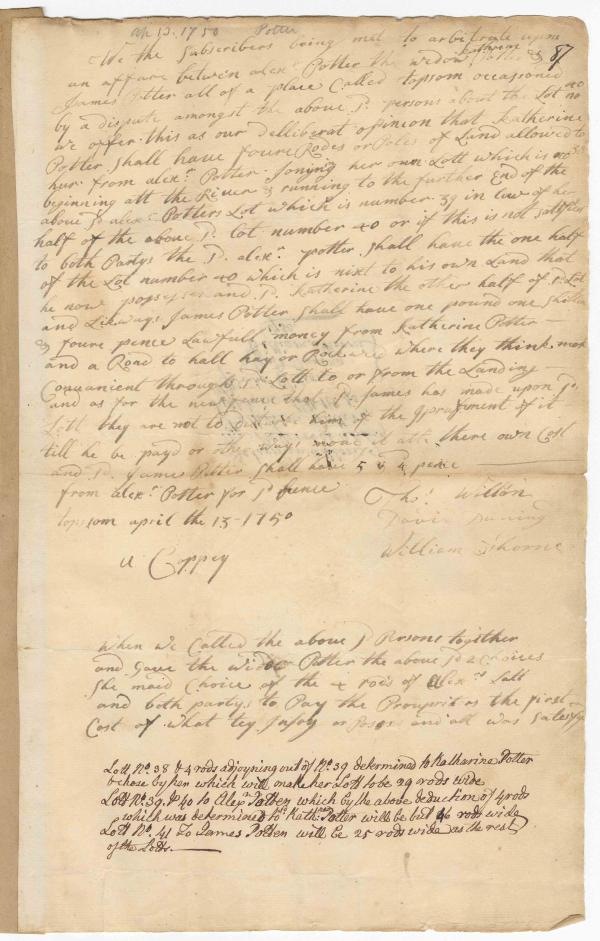 Ap 13. 1750 Potter
We the Subscribers being met to arbitrate upon
an affare betwen alexr Potter the widow Katherine Potter &
87
James Potter all of a place Called topsom occasioned
by a dispute amongst the above sd. persons about the Lot no
we offer this as our delliberat opinion that Katherine
Potter Shall have foure Rodes or Poles of Land allowed to
hur from alexr. Potter Jonying her own Lott which is no 38
beginning att the River & running to the further End of the
above sd alexr Potters Lot which is number 39 in lew of her
half of the above sd. lot number 40 or if this is not sattisfieri
to both Partys the sd. alexr. potter Shall have the one half
of the Lot number 40 which is nixt to his own Land that
he now posseses and sd. Katherine the other half of sd Lot
and Likways James Potter Shall have one pound one Shillin
& foure pence Lawfull money from Katherine Potter
and a Road to hall hay or Rockweed where they think most
Convanient through sd Lott to or from the Landing
and as for the new fence that sd James has made upon sd
Lott they are not to him of the Improfment of it
till he be payd or other ways move it att there own Cost
and sd. James Potter Shall have 5 & 4 pence
from alexr Potter for sd fence
topsom april the 13-1750
Thos. Willson
David Duning
William Thorne
a Coppey
when we Called the above sd Persons together
and Gave the Widow Potter the above sd 2 Choices
She maid Choice of the 4 rods of Alexrs Lott
and both partys to Pay the Proprit rs the first
Cost of what tey Injoy or Posess and all was Satesfyd
Lott No. 38 & 4 rods adjoyning out of No. 39 determined to Katharine Potter
& chose by her which will make her Lott to be 29 rods wide
Lott No. 39. & 40 to Alexr Potter which by the above deduction of 4 rods
which was determined to Kathne Potter will be but 46 rods wide
Lott No. 41 To James Potter will be 25 rods wide as the rest
of the Lotts.